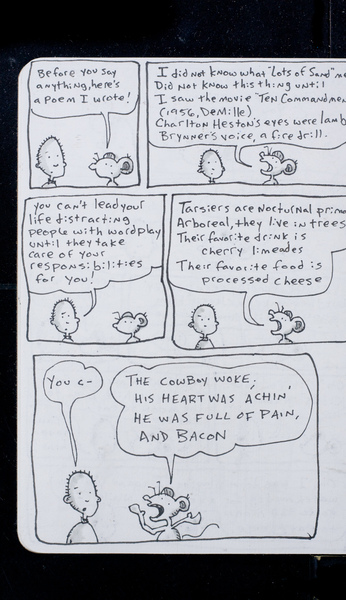 Before you say
anything, here's
a poem I wrote!
I did not know what "Lots of Sand"
Did not know this thing until
I saw the movie "Ten
(1956, DeMille)
Charlton Heston's eyes were
Brynner's voice, a fire drill.
you can't lead your
life distracting
people with wordplay
until they take
care of your
responsibilities
for you!
Tarsiers are nocturnal
Arboreal, they live in trees
Their favorite drink is
cherry limeades
Their favorite food is
processed cheese
You c-
THE COWBOY WOKE;
HIS HEART WAS ACHIN',
HE WAS FULL OF PAIN,
AND BACON